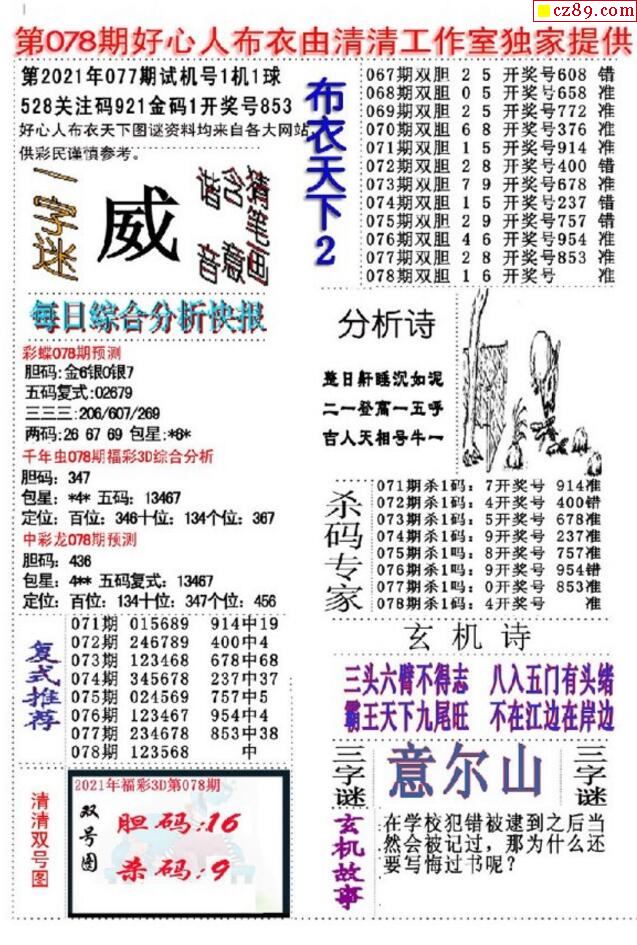 cz89.com
第078期好心人布衣由清清工作室独家提供
第2021年077期试机号1机1球
528关注码921金码1开奖号853
好心人布衣天下图谜资料均来自各大网站,
供彩民谨慎参考。
一字迷
威
谐音
含意
猜笔画
每日综合分析快报
彩蝶078期预测
胆码:金6银0银7
五码复式:02679
三三三:206/607/269
两码:26 67 69 包星:*6*
千年虫078期福彩3D综合分析
胆码: 347
包星: *4* 五码: 13467
定位: 百位: 346十位: 134个位: 367
中彩龙078期预测
胆码: 436
包星: 4** 五码复式: 13467
定位: 百位: 134十位: 347个位: 456
复式推荐
071期 015689 914中19
072期 246789 400中4
073期 123468 678中68
074期 345678 237中37
075期 024569 757中5
076期 123467 954中4
077期 234678 853中38
078期 123568 中
清清双号图
2021年福彩3D第078期
双号图
胆码:16
杀码:9
布衣天下2
067期双胆 2 5 开奖号608 错
068期双胆 0 5 开奖号658 准
069期双胆 2 5 开奖号772 准
070期双胆 6 8 开奖号376 准
071期双胆 1 5 开奖号914 准
072期双胆 2 8 开奖号400 错
073期双胆 7 9 开奖号678 准
074期双胆 1 5 开奖号237 错
075期双胆 2 9 开奖号757 错
076期双胆 4 6 开奖号954 准
077期双胆 2 8 开奖号853 准
078期双胆 1 6 开奖号 准
分析诗
整日鼾睡沉如泥
二一登高一五呼
吉人天相号牛一
杀码专家
071期杀1码: 7开奖号 914准
072期杀1码: 4开奖号 400错
073期杀1码: 5开奖号 678准
074期杀1码: 9开奖号 237准
075期杀1吗: 8开奖号 757准
076期杀1吗: 9开奖号 954错
077期杀1吗: 0开奖号 853准
078期杀1码: 4开奖号 准
玄机诗
三头六臂不得志 八入五门有头绪
霸王天下九尾旺 不在江边在岸边
三字谜
意尔山
三字谜
玄机故事
在学校犯错被逮到之后当
然会被记过，那为什么还
要写悔过书呢？